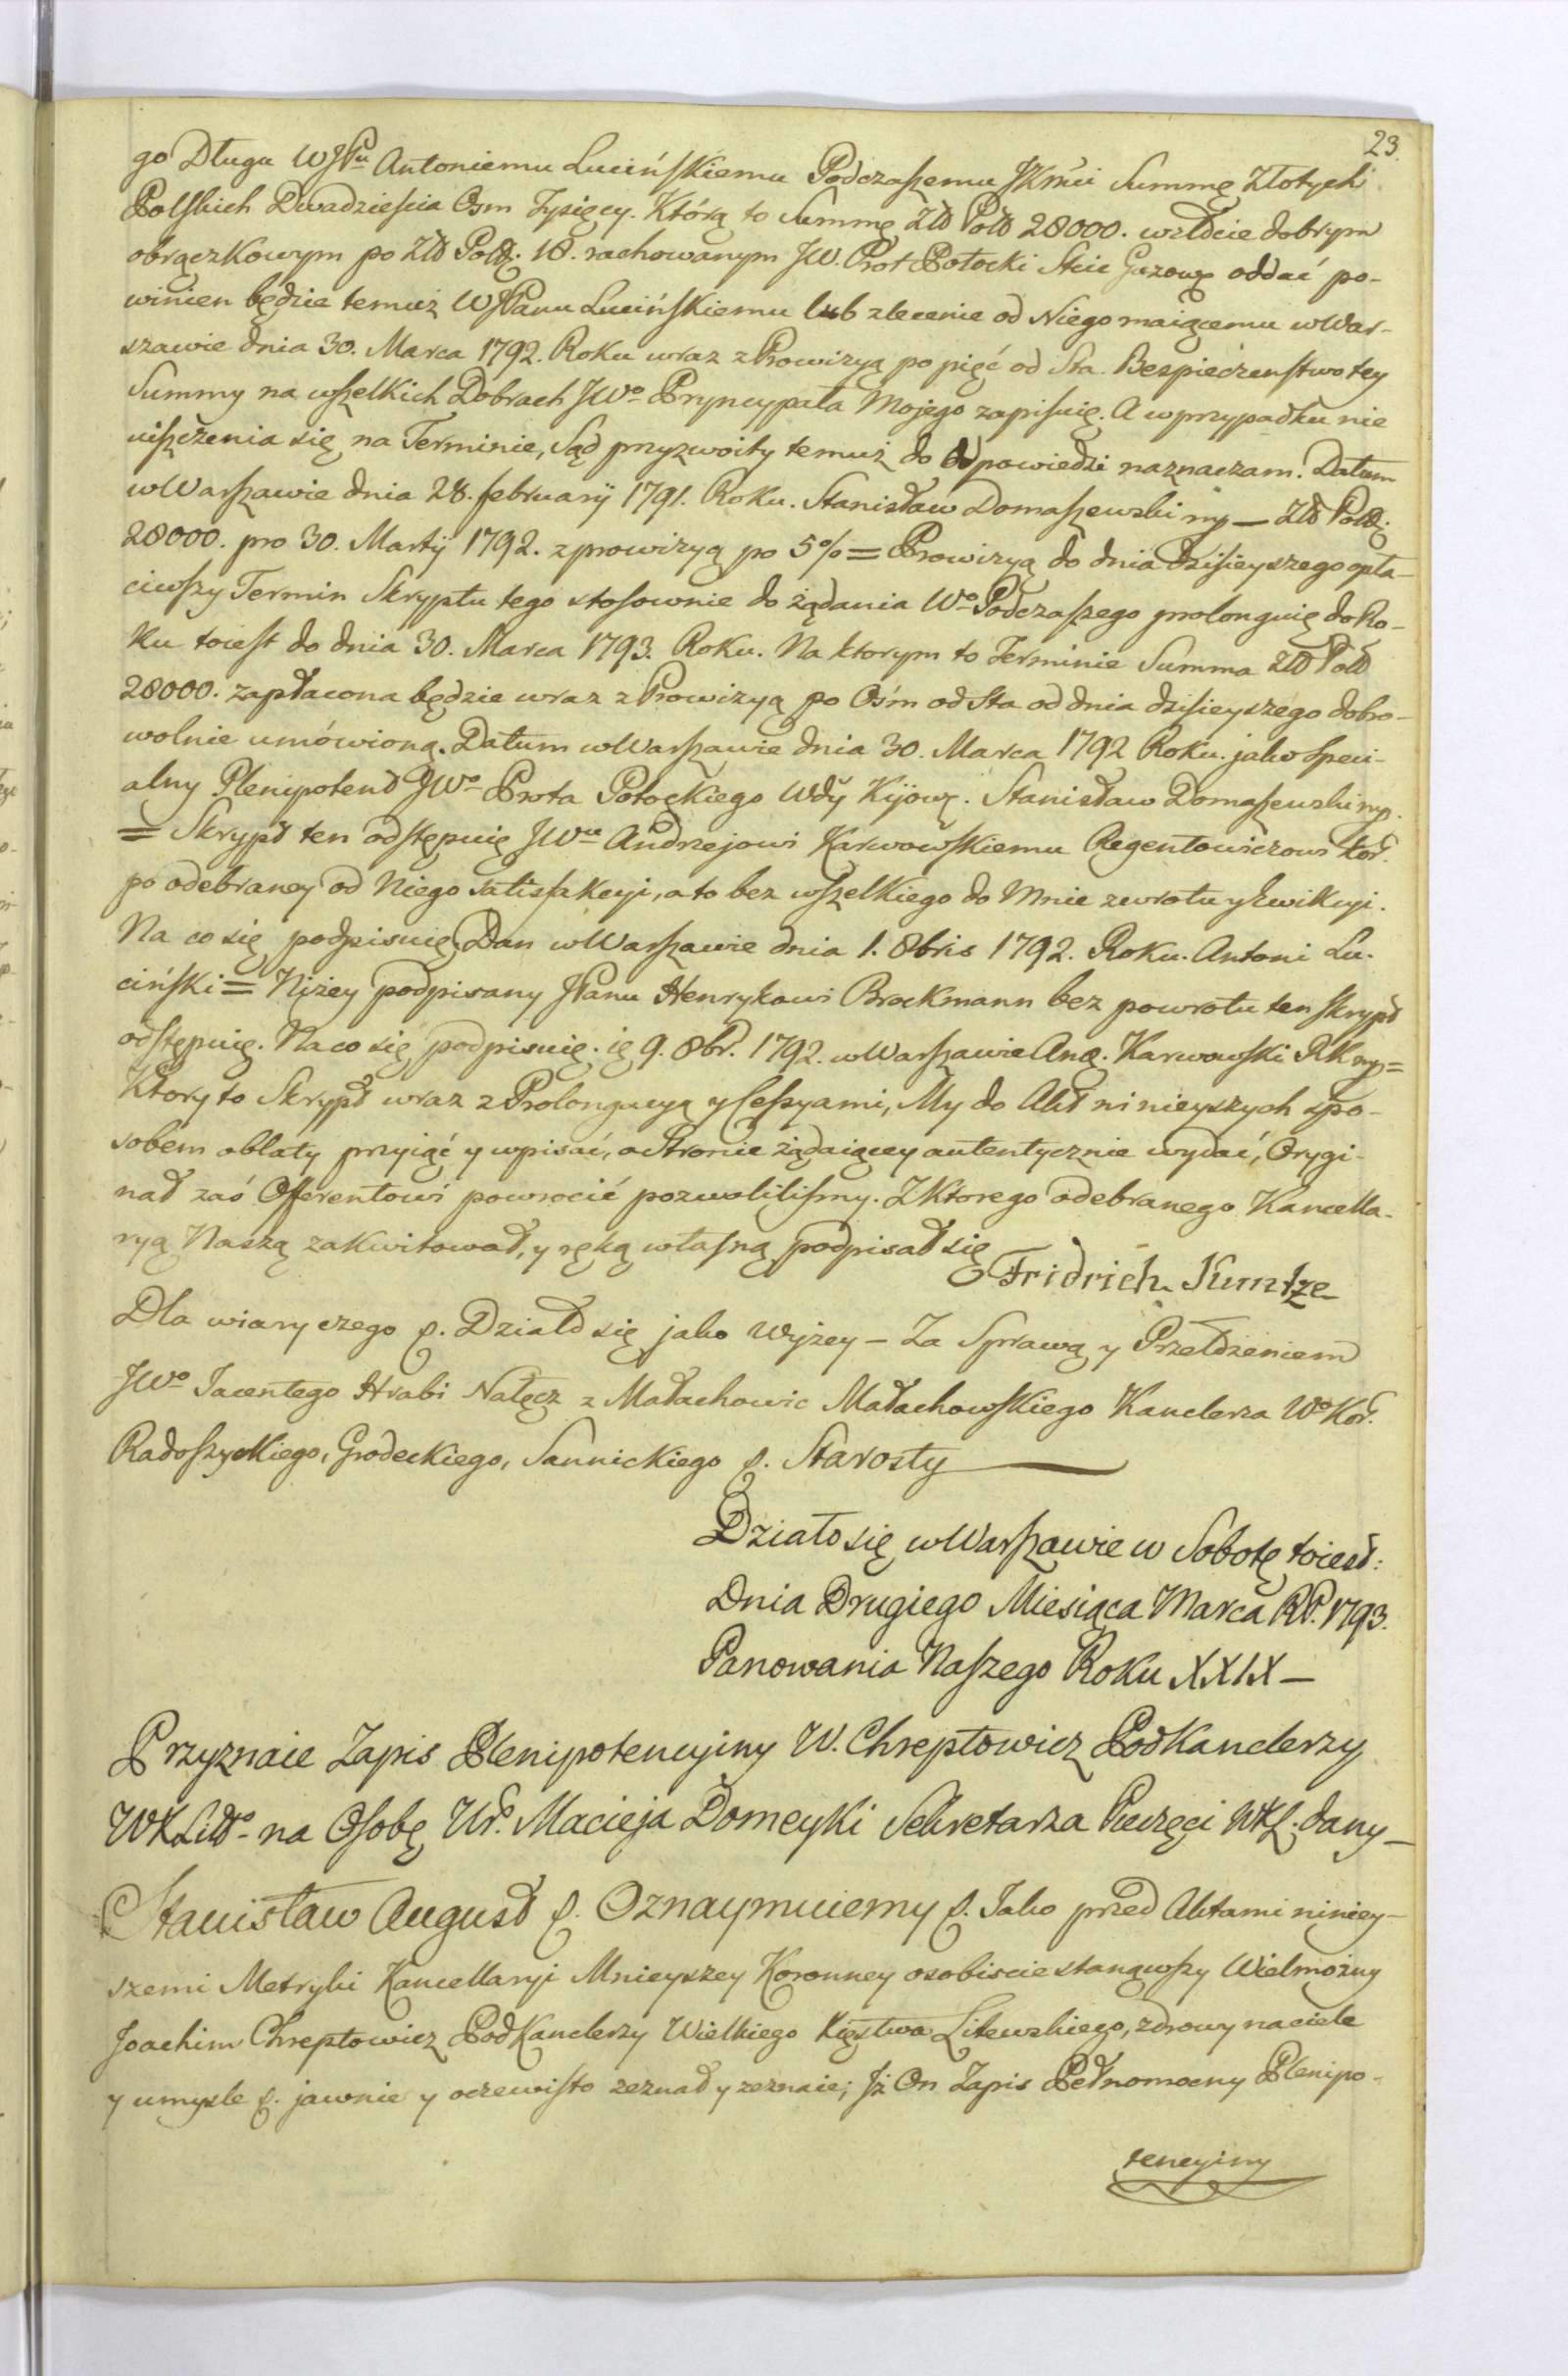 23.
go Długu WJPu Antoniemu Lucińskiemu Podczaszemu JKMci Summę Złotych
Polskich Dwadzieścia Osm Tysięcy. Którą to Summę Złł Poll 28000. w złocie dobrym
obrączkowym po Złł Pols: 18. rachowanym JW. Prot Potocki Stta Guzow: oddać po-
winien będzie temuż WJPanu Lucińskiemu lub zlecenie od Niego maiącemu w War-
szawie dnia 30. Marca 1792. Roku wraz z Prowizyą po pięć od Sta. Bespieczenstwo tey
Summy na wszelkich Dobrach JWo Pryncypała Mojego zapisuię. A w przypadku nie
uiszczenia się na Terminie, Sąd przyzwoity temuż do Odpowiedzi naznaczam. Datum
w Warszawie dnia 28. februarÿ 1791. Roku. Stanisław Domaszewski mp — Złł Pols:
28000. pro 30. Martÿ 1792. z prowizyą po 5% = Prowizyą do dnia dzisieyszego opła-
ciwszy Termin Skryptu tego stosownie do żądania Wo Podczaszego prolonguię do Ro-
ku toiest do dnia 30. Marca 1793. Roku. Na ktorym to Terminie Summa Złł Poll
28000. zapłacona będzie wraz z Prowizyą po Ośm od Sta od dnia dzisieyszego dobro-
wolnie umówioną. Datum w Warszawie dnia 30. Marca 1792 Roku. jako Speci-
alny Plenipotent JWo Prota Potockiego Wdy Kijow: Stanisław Domaszewski mp.
= Skrypt ten odstępuię JWu Andrzejowi Karwowskiemu Regentowiczowi Kor.
po odebraney od Niego satisfakcyi, a to bez wszelkiego do Mnie zwrotu y Ewikcyi.
Na co się podpisuię Dan w Warszawie dnia 1. 8bris 1792. Roku. Antoni Lu-
ciński = Niżey podpisany JPanu Henrykowi Brockmann bez powrotu ten skrypt
odstępuię. Na co się podpisuię. 9. 8br. 1792. w Warszawie And. Karwowski RK mp =
Ktory to Skrypt wraz z Prolongacyą y Cessyami, My do Akt ninieyszych spo-
sobem oblaty przyiąć y wpisać, a Stronie żądaiącey autentycznie wydać, Orygi-
nał zaś Offerentowi powrocić pozwoliliśmy. Z Ktorego odebranego Kancella-
ryą Naszą zakwitował, y ręką własną podpisał się
Fridrich Kuntze
Dla wiary czego p. Działo się jako Wyżey — Za Sprawą y Przełożeniem
JWo Jacentego Hrabi Nałęcz z Małachowic Małachowskiego Kanclerza Wo Kor.
Radoszyckiego, Grodeckiego, Sannickiego p. Starosty
Działo się w Warszawie w Sobotę toiest:
Dnia Drugiego Miesiąca Marca RP. 1793.
Panowania Naszego Roku XXIX —
Przyznaie Zapis Plenipotencyiny W. Chreptowicz PodKanclerzy
WXLitto - na Osobę Ur. Macieja Domeyki Sekretarza Pieczęci WXL. dany —
Stanisław August p. Oznaymuiemy p. Jako przed Aktami niniey-
szemi Metryki Kancellaryi Mnieyszey Koronney osobiscie stanąwszy Wielmożny
Joachim Chreptowicz PodKanclerzy Wielkiego Xięstwa Litewskiego, zdrowy na ciele
y umysle p. jawnie y oczewisto zeznał y zeznaie; Iż On Zapis Pełnomocny Plenipo-
tencyiny